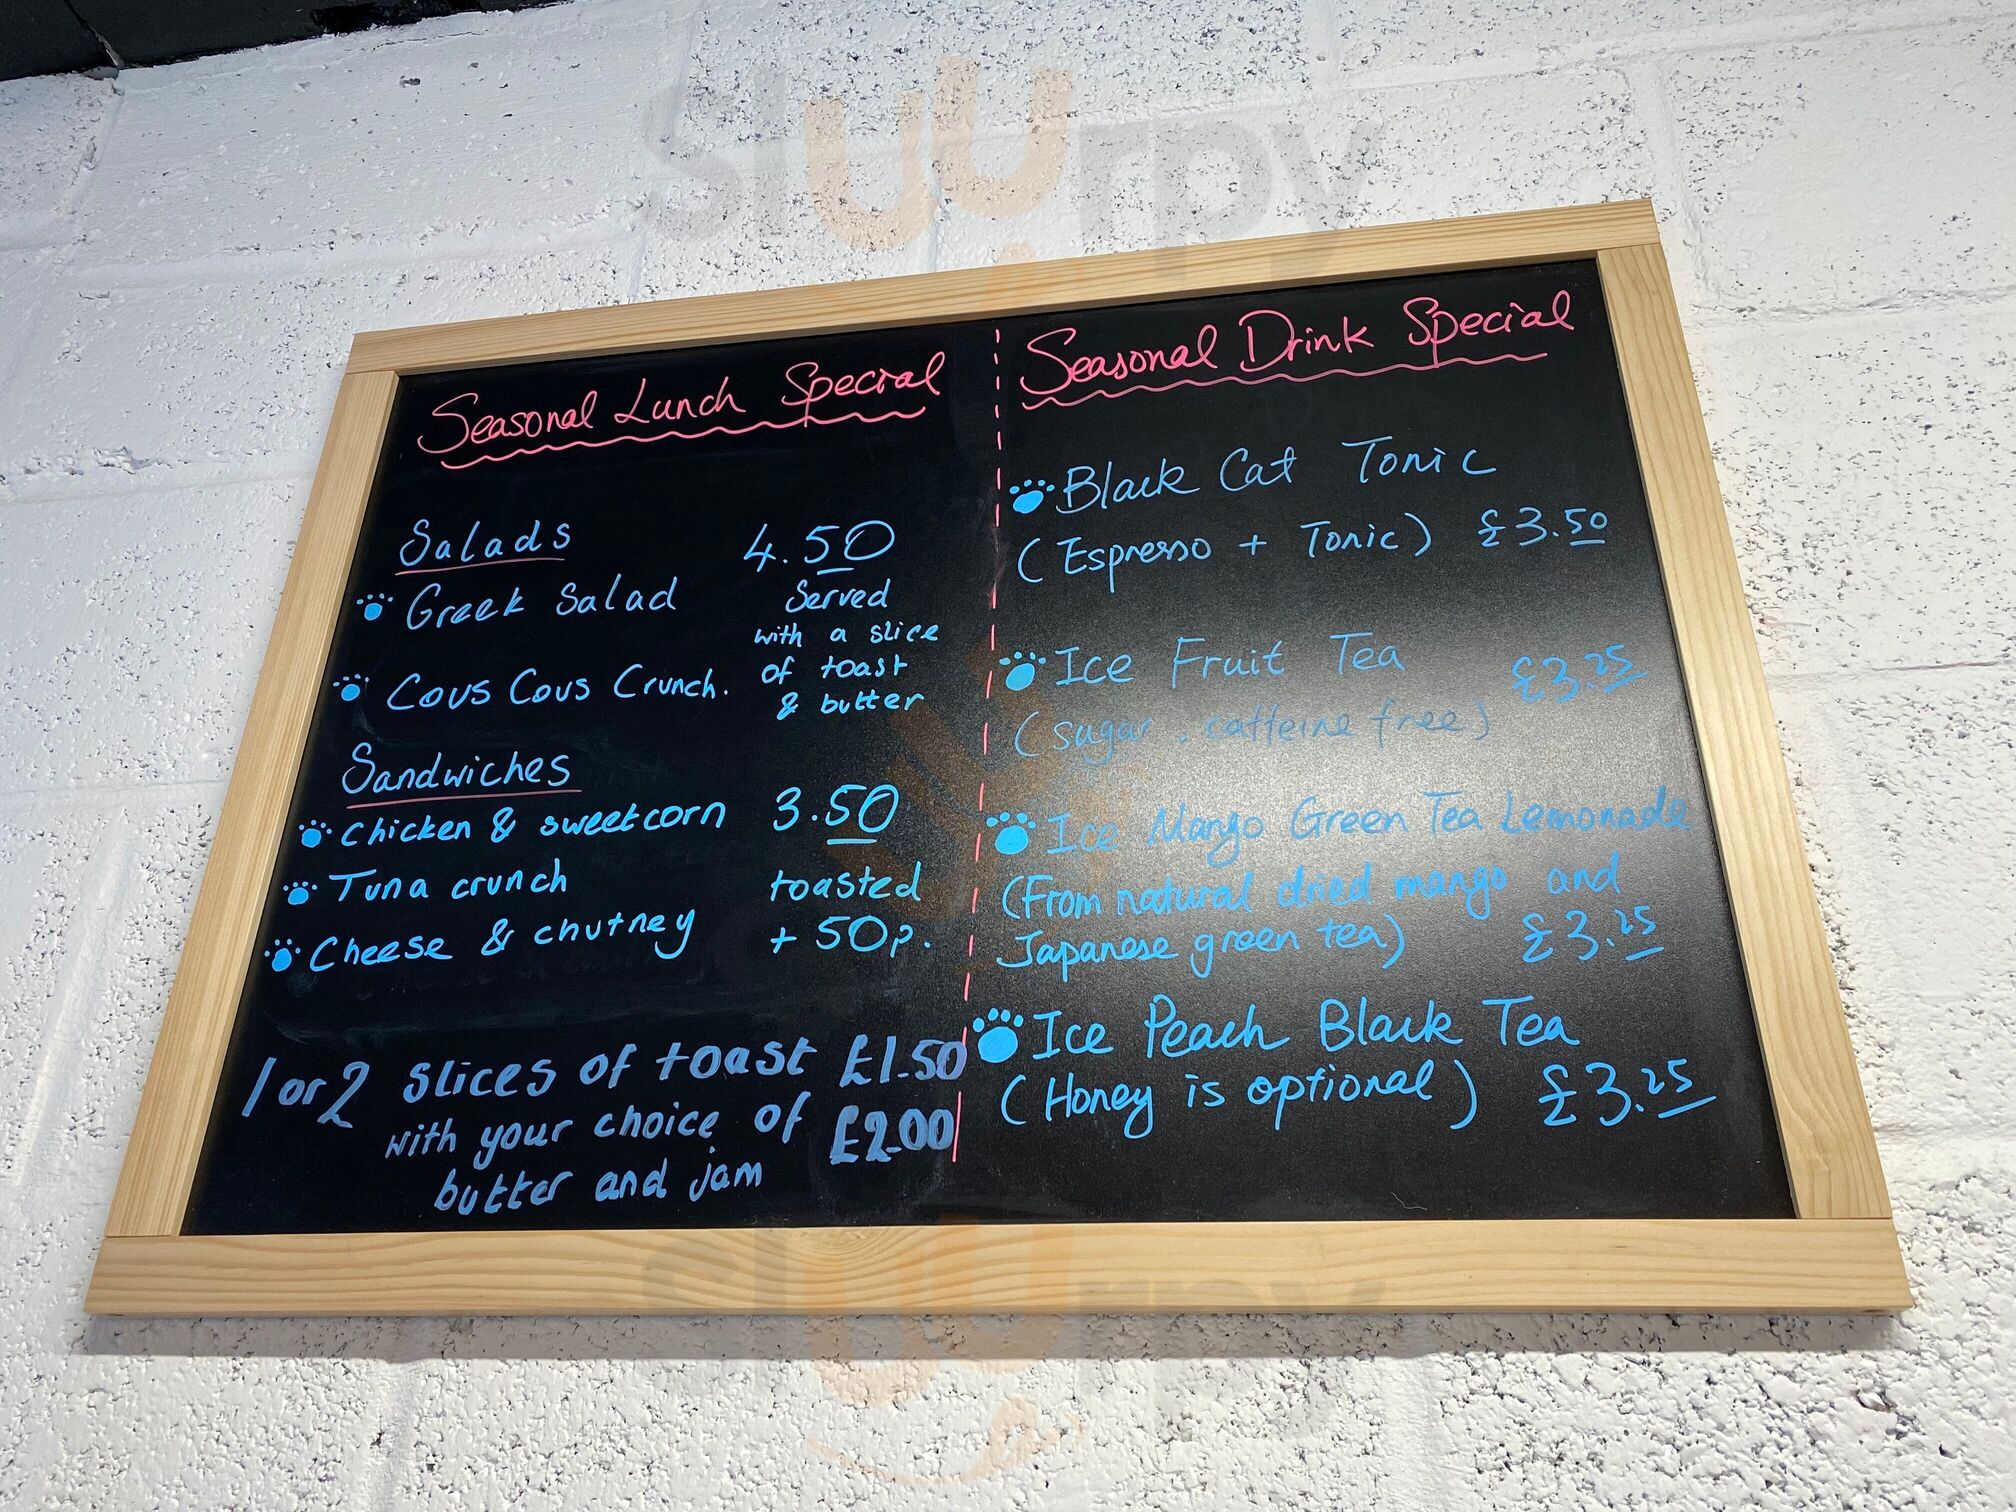 sluurpy
Seasonal Lunch Special
Salads 4.50
Greek Salad
Served
with a slice
of toast
& butter
Cous Cous Crunch.
Sandwiches
Chicken & sweetcorn 3.50
Tuna crunch
toasted
+ 50p.
Cheese & chutney
1 or 2 slices of toast £1.50
with your choice of £2.00
butter and jam
Seasonal Drink Special
Black Cat Tonic
(Espresso + Tonic) £3.50
Ice Fruit Tea £3.25
(sugar, caffeine free)
Ice Mango Green Tea Lemonade
(From natural dried mango and
Japanese green tea) £3.25
Ice Peach Black Tea
(Honey is optional) £3.25
sluurpy